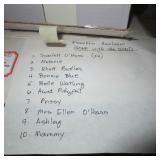 Familiar Section:
Gone with the Wind
1. Scarlett O'Hara
2. Melanie
3. Rhett Butler
4. Bonnie Blue
5. Belle Watling
6. Aunt Pittypat
7. Prissy
8. Mrs Ellen O'Hara
9. Ashley
10. Mammy